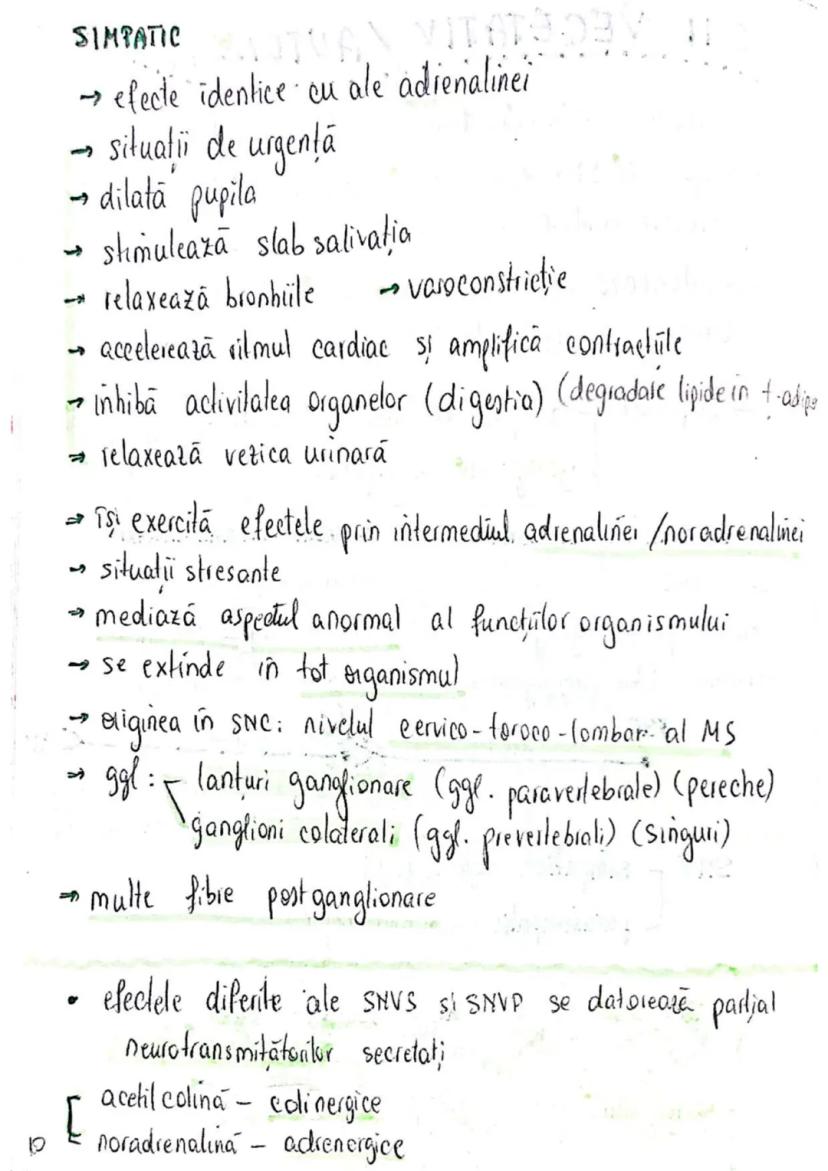 SIMPATIC
→ efecte identice cu ale adrenalinei
→ situații de urgență
→ dilată pupila
→ stimulează slab salivația
→ relaxează bronhiile → vasoconstricție
→ accelerează ritmul cardiac și amplifică contracțiile
→ inhibă activitatea organelor (digestia) (degradare lipide in t. adipo
→ relaxează vezica urinară
→ își exercită efectele prin intermediul adrenalinei / noradrenalinei
→ situații stresante
→ mediază aspectul anormal al funcțiilor organismului
→ se extinde in tot organismul
→ originea în SNC: nivelul cervico-toroco-lombar al MS
→ ggl: lanțuri ganglionare (ggl. paravertebrale) (pereche)
ganglioni colaterali (ggl. prevertebrali) (singuri)
→ multe fibre postganglionare
• efectele diferite ale SNVS și SNVP se datorează parțial
neurotransmițătorilor secretați
acetilcolină – colinergice
noradrenalină – adrenergice